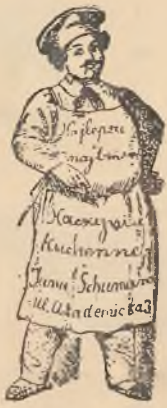 Najlepsze
najtansze
Naczynia
Kuchenne
Schumann
ul. Akademicka 3